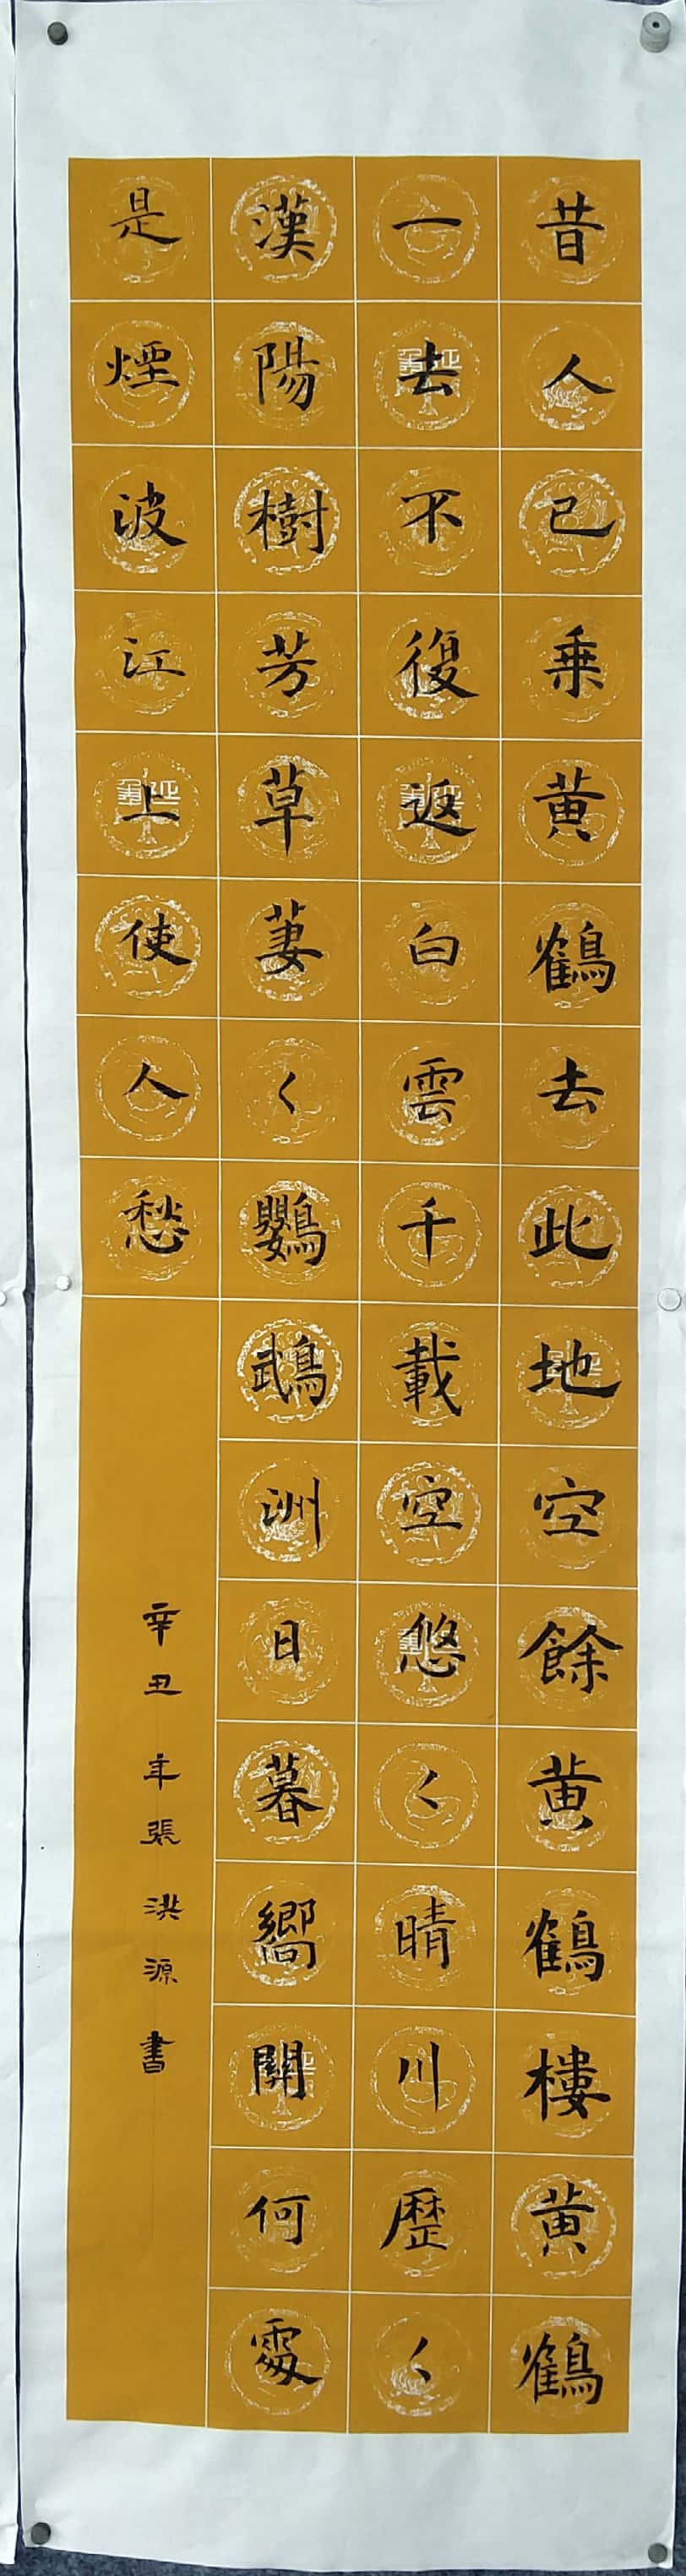 昔人已乘黃鶴去此地空餘黃鶴樓黃鶴
一去不復返白雲千載空悠々晴川歷々
漢陽樹芳草萋々鸚鵡洲日暮嚮關何處
是煙波江上使人愁
辛丑年張洪源書